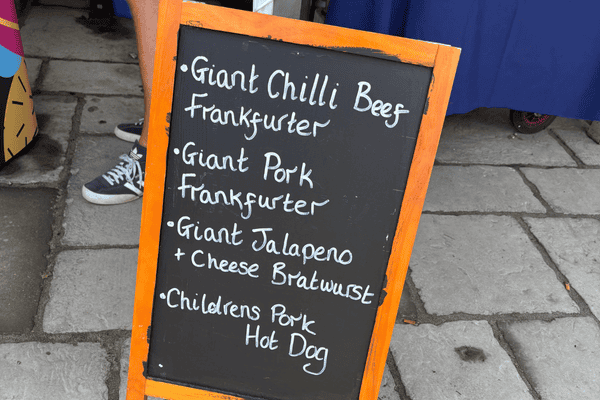 • Giant Chilli Beef
Frankfurter
• Giant Pork
Frankfurter
• Giant Jalapeno
+ Cheese Bratwurst
• Childrens Pork
Hot Dog
•